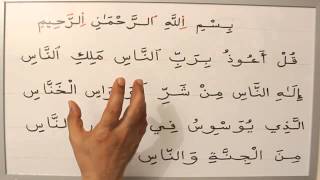 بِسْمِ اللَّهِ الرَّحْمَٰنِ الرَّحِيمِ
قُلْ أَعُوذُ بِرَبِّ النَّاسِ مَلِكِ النَّاسِ
إِلَٰهِ النَّاسِ مِنْ شَرِّ الْخَنَّاسِ
الَّذِي يُوَسْوِسُ فِي النَّاسِ
مِنَ الْجِنَّةِ وَالنَّاسِ